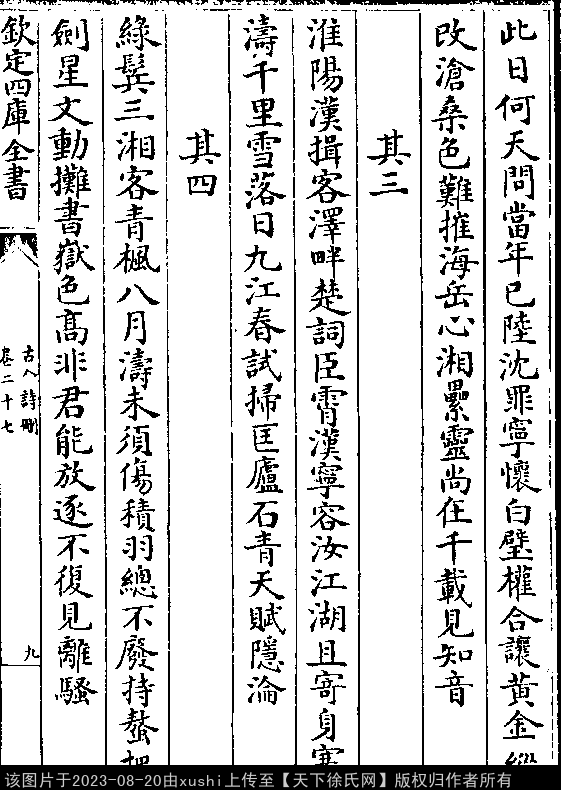 此日何天問當年已陸沈罪寧懷白璧權合讓黄金縱
改滄桑色難摧海岳心湘纍靈尚在千載見知音
其三
淮陽漢揖客澤畔楚詞臣霄漢寧容汝江湖且寄身寒
濤千里雪落日九江春試掃匡廬石青天賦隱淪
其四
綠鬢三湘客青楓八月濤未須傷積羽總不廢持螯把
劍星文動攤書嶽色高非君能放逐不復見離騷
欽定四庫全書
古今詩刪
卷二十七
九
该图片于2023-08-20由xushi上传至【天下徐氏网】版权归作者所有